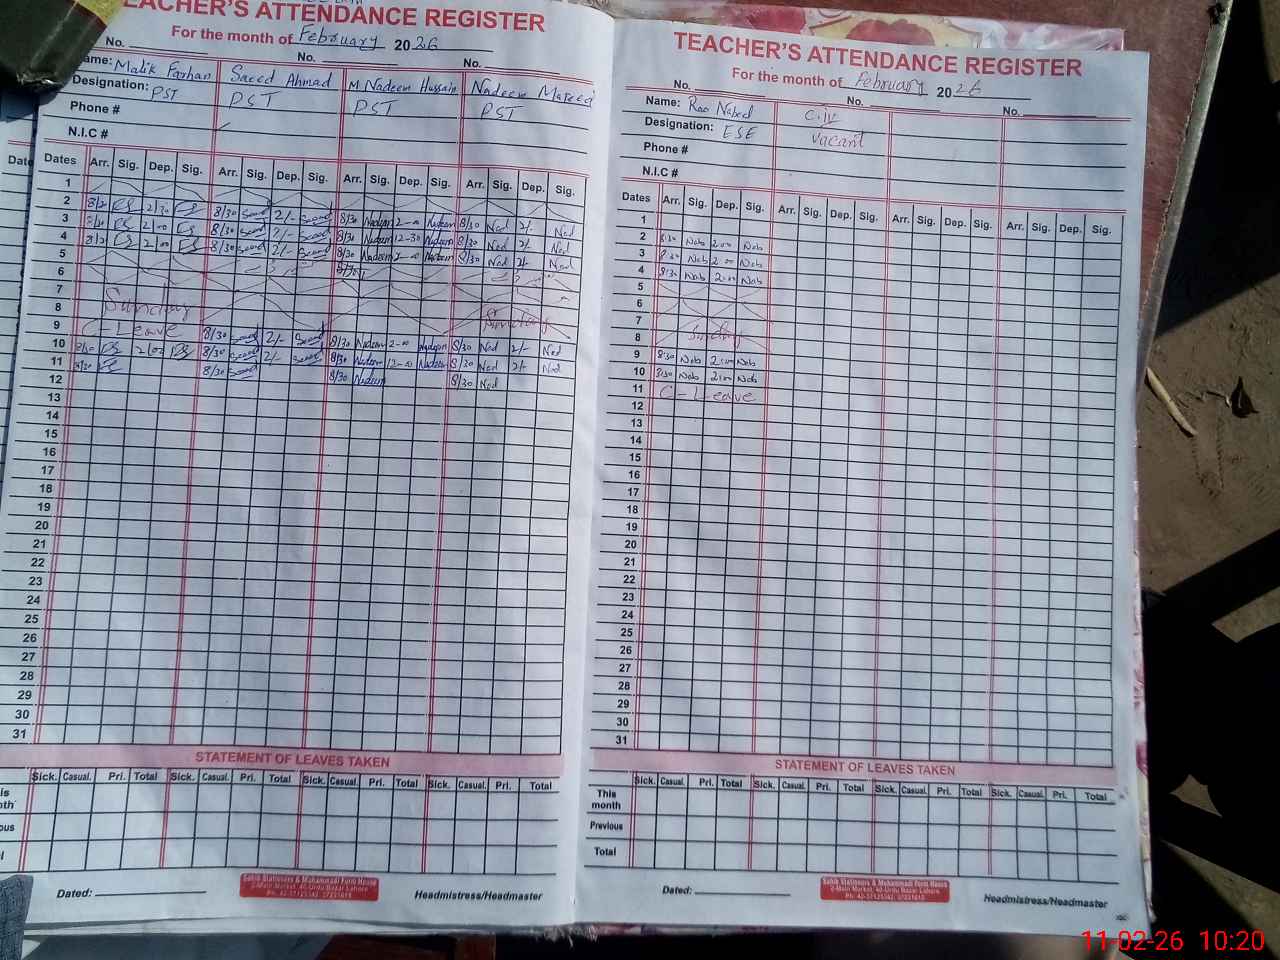 TEACHER'S ATTENDANCE REGISTER
For the month of February 2026
No. No. No.
Name: Malik Farhan Saeed Ahmad M Nadeem Hussain Nadeem Majeed
Designation: PST PST PST PST
Phone #
N.I.C #
Dates Arr. Sig. Dep. Sig. Arr. Sig. Dep. Sig. Arr. Sig. Dep. Sig. Arr. Sig. Dep. Sig.
1
2 2/30 8/30 2/- 8/30 Nadeem 2-00 Nadeem 8/30 Ned 2/- Ned
3 8/30 2/00 8/30 2/- 8/30 Nadeem 12-30 Nadeem 8/30 Ned 2/- Ned
4 2/00 8/30 2/- 8/30 Nadeem 2-00 Nadeem 8/30 Ned 2/- Ned
5
6
7
8 Sunday Sunday
9 C-Leave 8/30 2/- 8/30 Nadeem 2-00 Nadeem 8/30 Ned 2/- Ned
10 8/30 2/00 8/30 2/- 8/30 Nadeem 12-00 Nadeem 8/30 Ned 2/- Ned
11 8/30 8/30 8/30 Nadeem 8/30 Ned
12
13
14
15
16
17
18
19
20
21
22
23
24
25
26
27
28
29
30
31
STATEMENT OF LEAVES TAKEN
Sick. Casual. Pri. Total Sick. Casual. Pri. Total Sick. Casual. Pri. Total Sick. Casual. Pri. Total
Dated:
Sahib Stationers & Muhammadi Form House
2-Main Market, 40-Urdu Bazar Lahore
Headmistress/Headmaster
TEACHER'S ATTENDANCE REGISTER
For the month of February 2026
No. No. No.
Name: Rao Nabeel C.IV
Designation: ESE Vacant
Phone #
N.I.C #
Dates Arr. Sig. Dep. Sig. Arr. Sig. Dep. Sig. Arr. Sig. Dep. Sig. Arr. Sig. Dep. Sig.
1
2 8:30 Nab 2:00 Nab
3 8:30 Nab 2:00 Nab
4 8:30 Nab 2:00 Nab
5
6
7
8 Sunday
9 8:30 Nab 2:00 Nab
10 8:30 Nab 2:00 Nab
11 C-Leave
12
13
14
15
16
17
18
19
20
21
22
23
24
25
26
27
28
29
30
31
STATEMENT OF LEAVES TAKEN
Sick. Casual. Pri. Total Sick. Casual. Pri. Total Sick. Casual. Pri. Total Sick. Casual. Pri. Total
This month
Previous
Total
Dated:
Sahib Stationers & Muhammadi Form House
2-Main Market, 40-Urdu Bazar Lahore
Headmistress/Headmaster
11-02-26 10:20